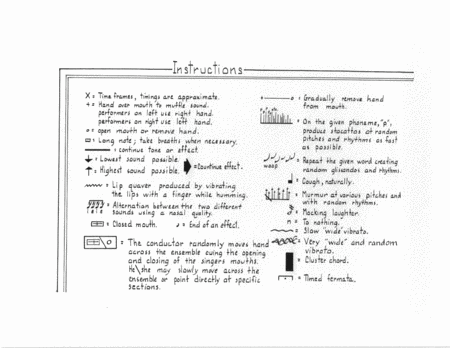 Instructions
X = Time frames, timings are approximate.
+ = Hand over mouth to muffle sound.
performers on left use right hand.
performers on right use left hand.
o = open mouth or remove hand.
= Long note; take breaths when necessary.
= continue tone or effect
= Lowest sound possible.
= Highest sound possible.
= Continue effect.
= Lip quaver produced by vibrating
the lips with a finger while humming.
= Alternation between the two different
sounds using a nasal quality.
= Closed mouth.
= End of an effect.
= The conductor randomly moves hand
across the ensemble cuing the opening
and closing of the singers mouths.
He\she may slowly move across the
ensemble or point directly at specific
sections.
= Gradually remove hand
from mouth.
= On the given phoneme, "p",
produce staccattos at random
pitches and rhythms as fast
as possible.
woop
= Repeat the given word creating
random glissandos and rhythms.
= Cough, naturally.
= Murmur at various pitches and
with random rhythms.
= Mocking laughter.
n = To nothing.
= Slow "wide" vibrato.
= Very "wide" and random
vibrato.
= Cluster chord.
= Timed fermata.